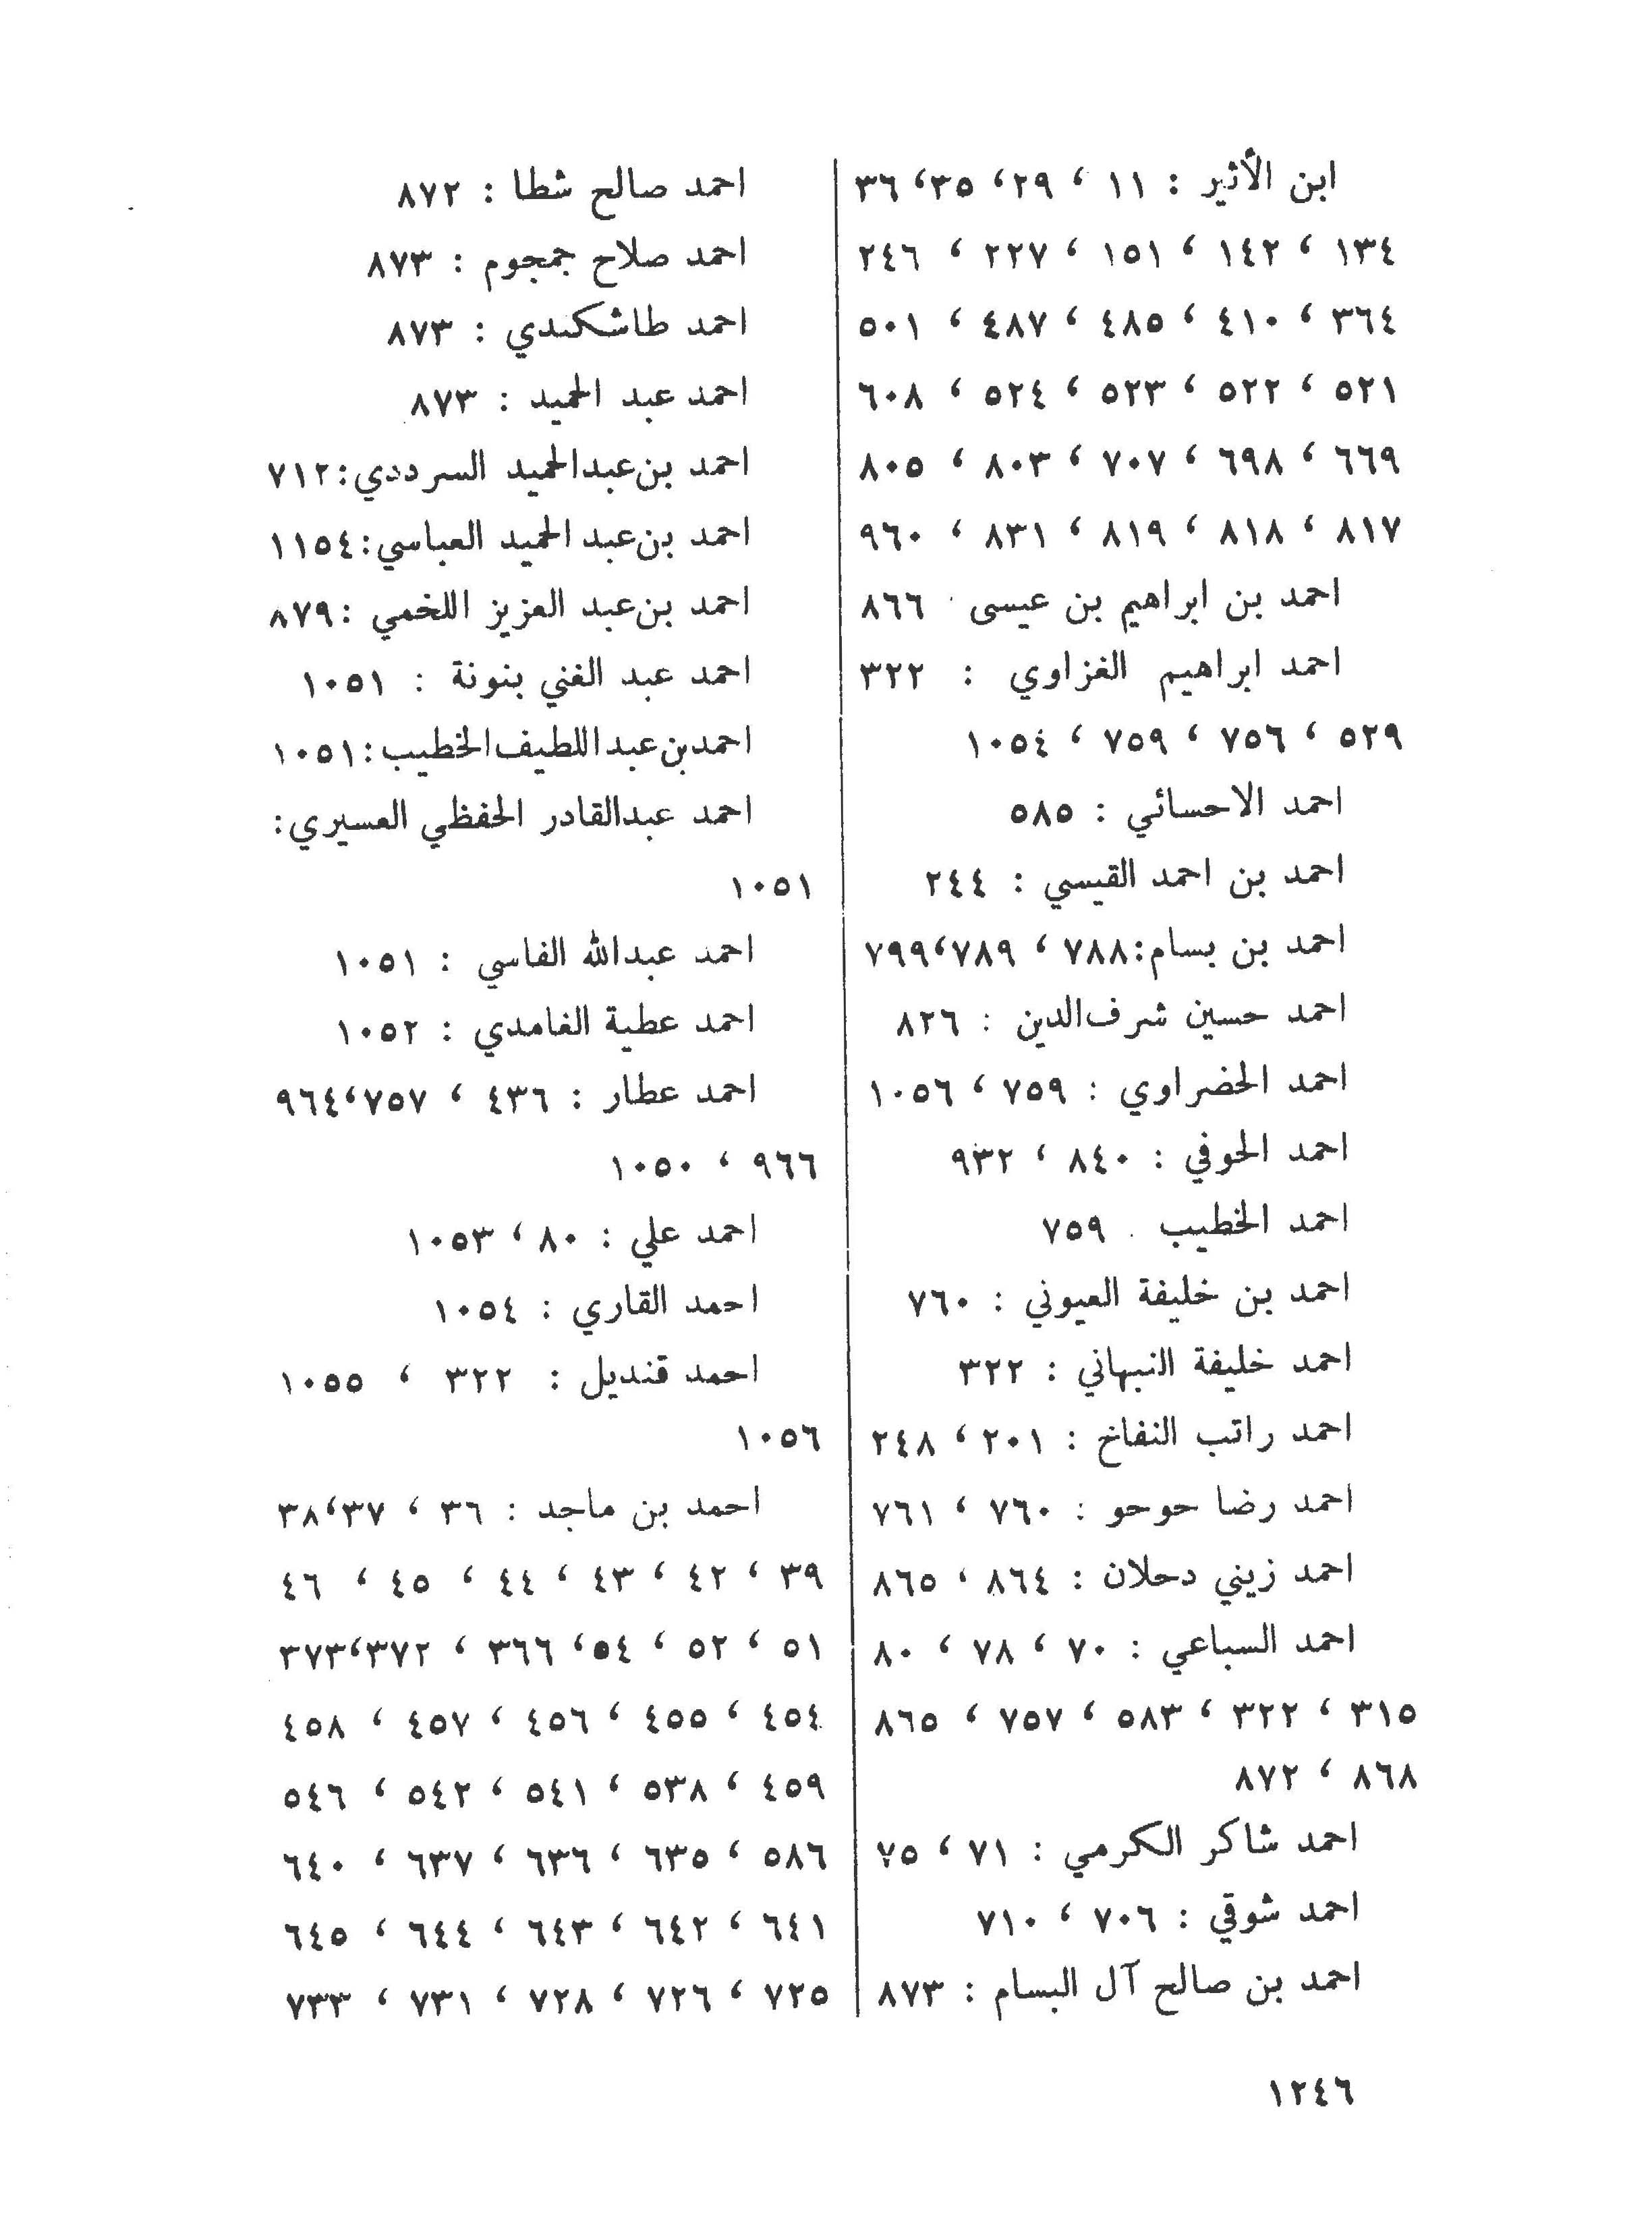 ابن الأثير : ١١ ، ٢٩، ٣٥، ٣٦
١٣٤ ، ١٤٢ ، ١٥١ ، ٢٢٧ ، ٢٤٦
٣٦٤ ، ٤١٠ ، ٤٨٥ ، ٤٨٧ ، ٥٠١
٥٢١ ، ٥٢٢ ، ٥٢٣ ، ٥٢٤ ، ٦٠٨
٦٦٩ ، ٦٩٨ ، ٧٠٧ ، ٨٠٣ ، ٨٠٥
٨١٧ ، ٨١٨ ، ٨١٩ ، ٨٣١ ، ٩٦٠
احمد بن ابراهيم بن عيسى ٨٦٦
احمد ابراهيم الغزاوي : ٣٢٢
٥٢٩ ، ٧٥٦ ، ٧٥٩ ، ١٠٥٤
احمد الاحسائي : ٥٨٥
احمد بن احمد القيسي : ٢٤٤
احمد بن بسام:٧٨٨ ، ٧٨٩،٧٩٩
احمد حسين شرف‌الدين : ٨٢٦
احمد الحضراوي : ٧٥٩ ، ١٠٥٦
احمد الحوفي : ٨٤٠ ، ٩٣٢
احمد الخطيب . ٧٥٩
احمد بن خليفة العيوني : ٧٦٠
احمد خليفة النبهاني : ٣٢٢
احمد راتب النفاخ : ٢٠١ ، ٢٤٨
احمد رضا حوحو : ٧٦٠ ، ٧٦١
احمد زيني دحلان : ٨٦٤ ، ٨٦٥
احمد السباعي : ٧٠ ، ٧٨ ، ٨٠
٣١٥ ، ٣٢٢ ، ٥٨٣ ، ٧٥٧ ، ٨٦٥
٨٦٨ ، ٨٧٢
احمد شاكر الكرمي : ٧١ ، ٧٥
احمد شوقي : ٧٠٦ ، ٧١٠
احمد بن صالح آل البسام : ٨٧٣
احمد صالح شطا : ٨٧٢
احمد صلاح جمجوم : ٨٧٣
احمد طاشكندي : ٨٧٣
احمد عبد الحميد : ٨٧٣
احمد بن‌عبدالحميد السرددي:٧١٢
احمد بن‌عبد الحميد العباسي:١١٥٤
احمد بن‌عبد العزيز اللخمي :٨٧٩
احمد عبد الغني بنونة : ١٠٥١
احمدبن‌عبداللطيف‌الخطيب:١٠٥١
احمد عبدالقادر الحفظي العسيري:
١٠٥١
احمد عبدالله الفاسي : ١٠٥١
احمد عطية الغامدي : ١٠٥٢
احمد عطار : ٤٣٦ ، ٧٥٧،٩٦٤
٩٦٦ ، ١٠٥٠
احمد علي : ٨٠ ، ١٠٥٣
احمد القاري : ١٠٥٤
احمد قنديل : ٣٢٢ ، ١٠٥٥
١٠٥٦
احمد بن ماجد : ٣٦ ، ٣٧،٣٨
٣٩ ، ٤٢ ، ٤٣ ، ٤٤ ، ٤٥ ، ٤٦
٥١ ، ٥٢ ، ٥٤، ٣٦٦ ، ٣٧٢،٣٧٣
٤٥٤ ، ٤٥٥ ، ٤٥٦ ، ٤٥٧ ، ٤٥٨
٤٥٩ ، ٥٣٨ ، ٥٤١ ، ٥٤٢ ، ٥٤٦
٥٨٦ ، ٦٣٥ ، ٦٣٦ ، ٦٣٧ ، ٦٤٠
٦٤١ ، ٦٤٢ ، ٦٤٣ ، ٦٤٤ ، ٦٤٥
٧٢٥ ، ٧٢٦ ، ٧٢٨ ، ٧٣١ ، ٧٣٣
١٢٤٦